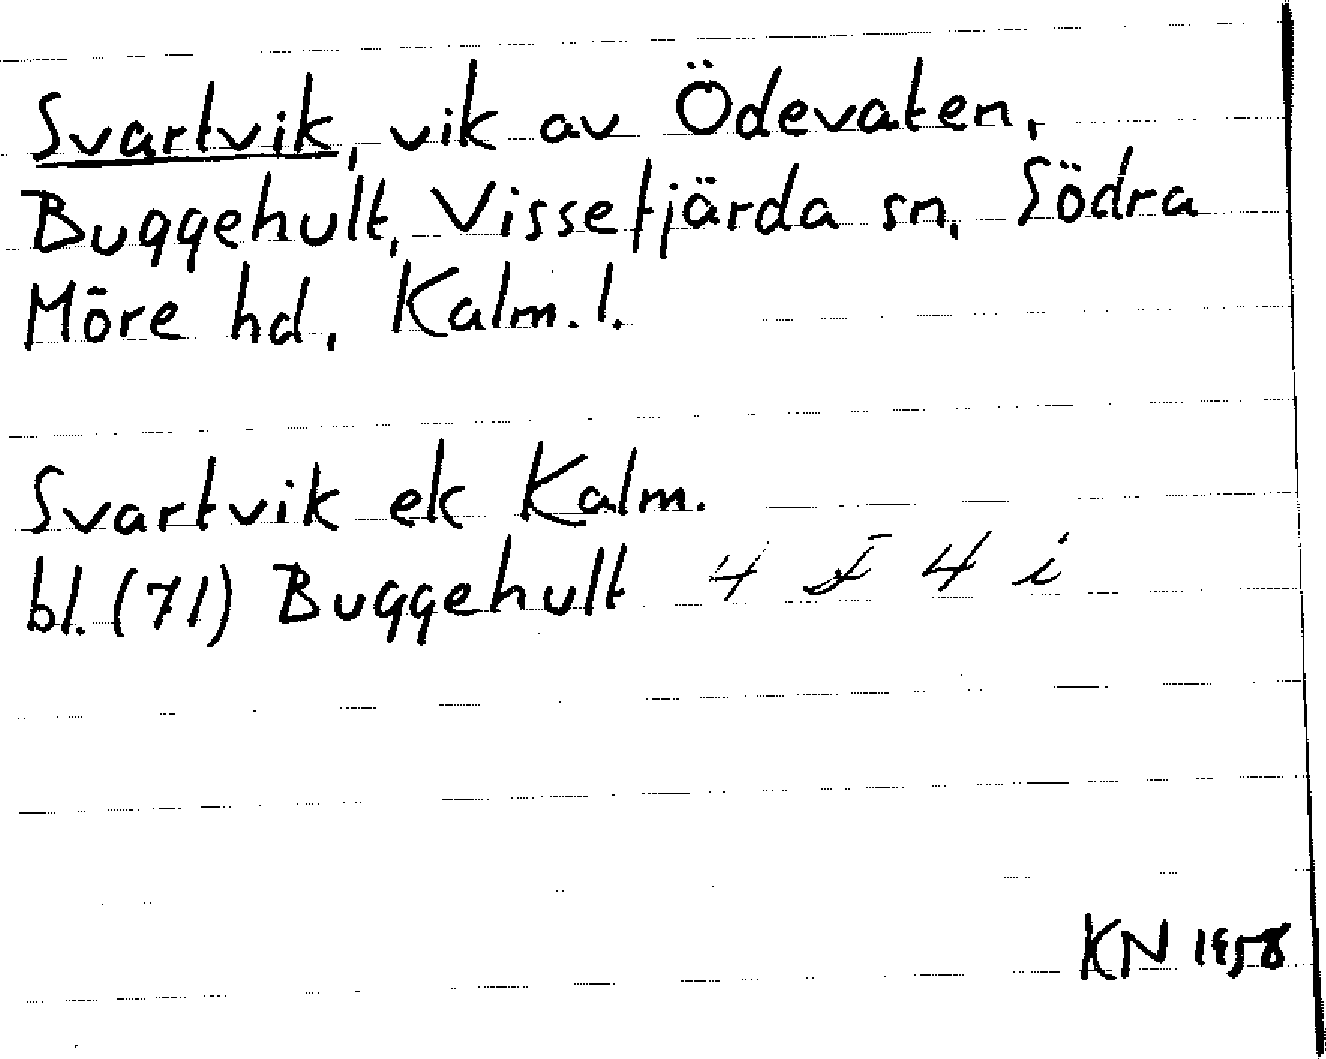 Svartvik, vik av Ödevaten,
Buggehult, Vissefjärda sn, Södra
Möre hd, Kalm. l.
Svartvik ek Kalm.
bl. (71) Buggehult 4 F 4 i
KN 1958